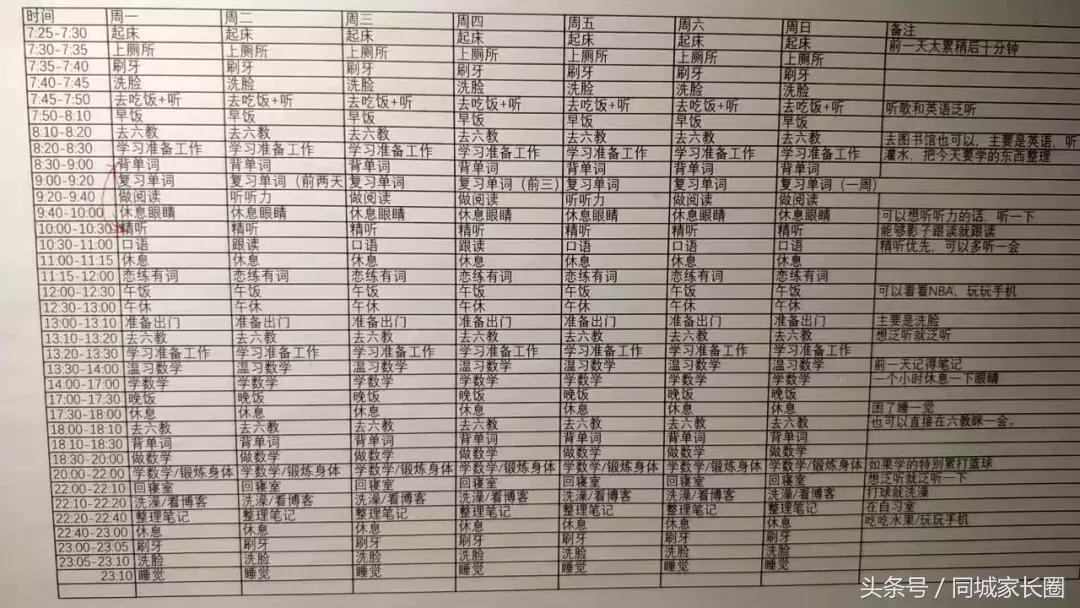 时间 周一 周二 周三 周四 周五 周六 周日 备注
7:25-7.30 起床 起床 起床 起床 起床 起床 起床 前一天太累稍后十分钟
7:30-7:35 上厕所 上厕所 上厕所 上厕所 上厕所 上厕所 上厕所
7:35-7:40 刷牙 刷牙 刷牙 刷牙 刷牙 刷牙 刷牙
7:40-7:45 洗脸 洗脸 洗脸 洗脸 洗脸 洗脸 洗脸
7:45-7:50 去吃饭+听 去吃饭+听 去吃饭+听 去吃饭+听 去吃饭+听 去吃饭+听 去吃饭+听 听歌和英语泛听
7:50-8:10 早饭 早饭 早饭 早饭 早饭 早饭 早饭
8:10-8:20 去六教 去六教 去六教 去六教 去六教 去六教 去六教 去图书馆也可以，主要是英语，听
8:20-8:30 学习准备工作 学习准备工作 学习准备工作 学习准备工作 学习准备工作 学习准备工作 学习准备工作 灌水，把今天要学的东西整理
8:30-9:00 背单词 背单词 背单词 背单词 背单词 背单词 背单词
9:00-9:20 复习单词 复习单词（前两天 复习单词 复习单词（前三） 复习单词 复习单词 复习单词（一周）
9:20-9.40 做阅读 听听力 做阅读 做阅读 听听力 做阅读 做阅读
9:40-10:00 休息眼睛 休息眼睛 休息眼睛 休息眼睛 休息眼睛 休息眼睛 休息眼睛 可以想听听力的话，听一下
10:00-10:30 精听 精听 精听 精听 精听 精听 精听 能够影子跟读就跟读
10:30-11:00 口语 跟读 口语 跟读 口语 口语 口语 精听优先，可以多听一会
11:00-11:15 休息 休息 休息 休息 休息 休息 休息
11:15-12:00 恋练有词 恋练有词 恋练有词 恋练有词 恋练有词 恋练有词 恋练有词
12:00-12:30 午饭 午饭 午饭 午饭 午饭 午饭 午饭 可以看看NBA，玩玩手机
12:30-13:00 午休 午休 午休 午休 午休 午休 午休
13:00-13:10 准备出门 准备出门 准备出门 准备出门 准备出门 准备出门 准备出门 主要是洗脸
13:10-13:20 去六教 去六教 去六教 去六教 去六教 去六教 去六教 想泛听就泛听
13:20-13:30 学习准备工作 学习准备工作 学习准备工作 学习准备工作 学习准备工作 学习准备工作 学习准备工作
13:30-14:00 温习数学 温习数学 温习数学 温习数学 温习数学 温习数学 温习数学 前一天记得笔记
14:00-17:00 学数学 学数学 学数学 学数学 学数学 学数学 学数学 一个小时休息一下眼睛
17:00-17:30 晚饭 晚饭 晚饭 晚饭 晚饭 晚饭 晚饭
17:30-18:00 休息 休息 休息 休息 休息 休息 休息 困了睡一觉
18:00-18:10 去六教 去六教 去六教 去六教 去六教 去六教 去六教 也可以直接在六教眯一会。
18:10-18:30 背单词 背单词 背单词 背单词 背单词 背单词 背单词
18:30-20:00 做数学 做数学 做数学 做数学 做数学 做数学 做数学
20:00-22:00 学数学/锻炼身体 学数学/锻炼身体 学数学/锻炼身体 学数学/锻炼身体 学数学/锻炼身体 学数学/锻炼身体 学数学/锻炼身体 如果学的特别累打篮球
22:00-22:10 回寝室 回寝室 回寝室 回寝室 回寝室 回寝室 回寝室 想泛听就泛听一下
22:10-22:20 洗澡/看博客 洗澡/看博客 洗澡/看博客 洗澡/看博客 洗澡/看博客 洗澡/看博客 洗澡/看博客 打球就洗澡
22:20-22:40 整理笔记 整理笔记 整理笔记 整理笔记 整理笔记 整理笔记 整理笔记 在自习室
22:40-23:00 休息 休息 休息 休息 休息 休息 休息 吃吃水果/玩玩手机
23:00-23:05 刷牙 刷牙 刷牙 刷牙 刷牙 刷牙 刷牙
23:05-23:10 洗脸 洗脸 洗脸 洗脸 洗脸 洗脸 洗脸
23:10 睡觉 睡觉 睡觉 睡觉 睡觉 睡觉 睡觉
头条号 / 同城家长圈